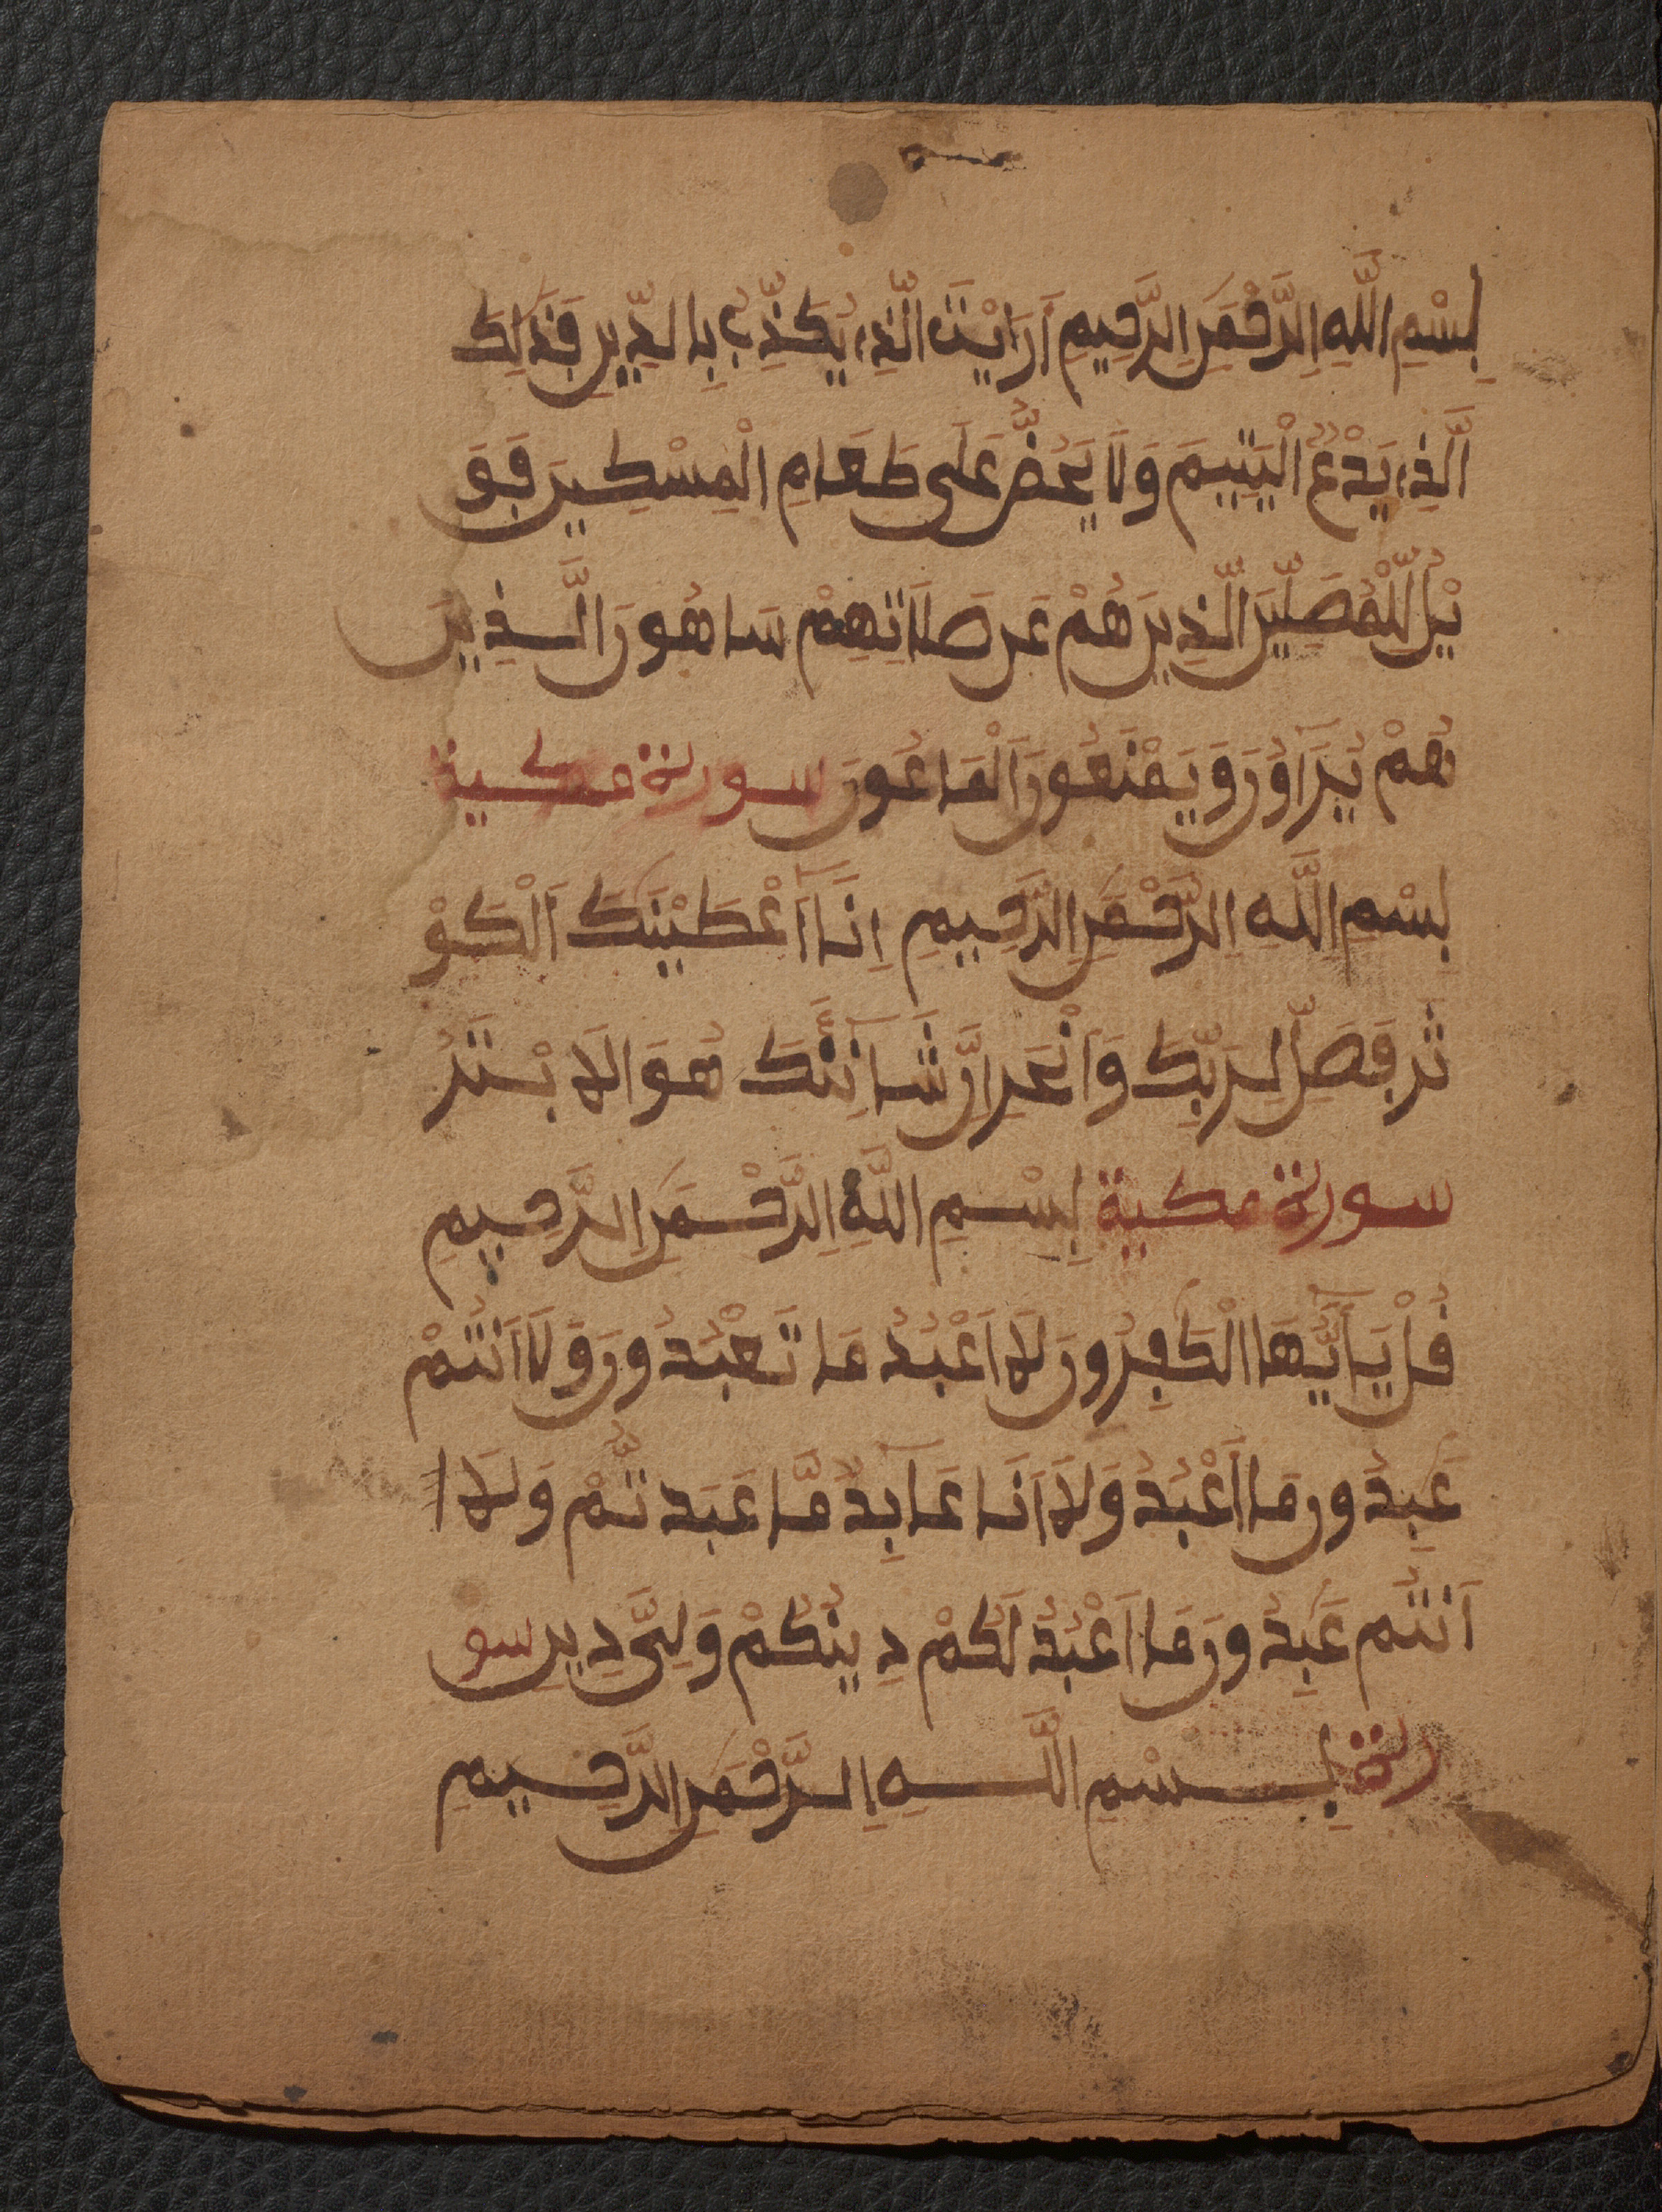 بِسْمِ اللَّهِ الرَّحْمَنِ الرَّحِيمِ أَرَايْتَ الَّذِے يُكَذِّبُ بِالدِّينِ فَذَلِكَ
الَّذِے يَدُعُّ الْيَتِيمَ وَلَا يَحُضُّ عَلَى طَعَامِ الْمِسْكِينِ فَوَ
يْلٌ لِّلْمُصَلِّينَ الَّذِينَ هُمْ عَن صَلَاتِهِمْ سَاهُونَ الَّذِينَ
هُمْ يُرَآءُونَ وَيَمْنَعُونَ الْمَاعُونَ سورة مكية
بِسْمِ اللَّهِ الرَّحْمَنِ الرَّحِيمِ إِنَّا أَعْطَيْنَكَ الْكَوْ
ثَرَ فَصَلِّ لِرَبِّكَ وَانْحَرِ انَّ شَانِئَكَ هُوَ الَابْتَرُ
سورة مكية بِسْمِ اللَّهِ الرَّحْمَنِ الرَّحِيمِ
قُلْ يَأَيُّهَا الْكَفِرُونَ لَا أَعْبُدُ مَا تَعْبُدُونَ وَلَا أَنتُمْ
عَبِدُونَ مَا أَعْبُدُ وَلَا أَنَا عَابِدٌ مَّا عَبَدتُّمْ وَلَا ا
أَنتُمْ عَبِدُونَ مَا أَعْبُدُ لَكُمْ دِينُكُمْ وَلِيَ دِينِ سو
رة بِسْمِ اللَّهِ الرَّحْمَنِ الرَّحِيمِ